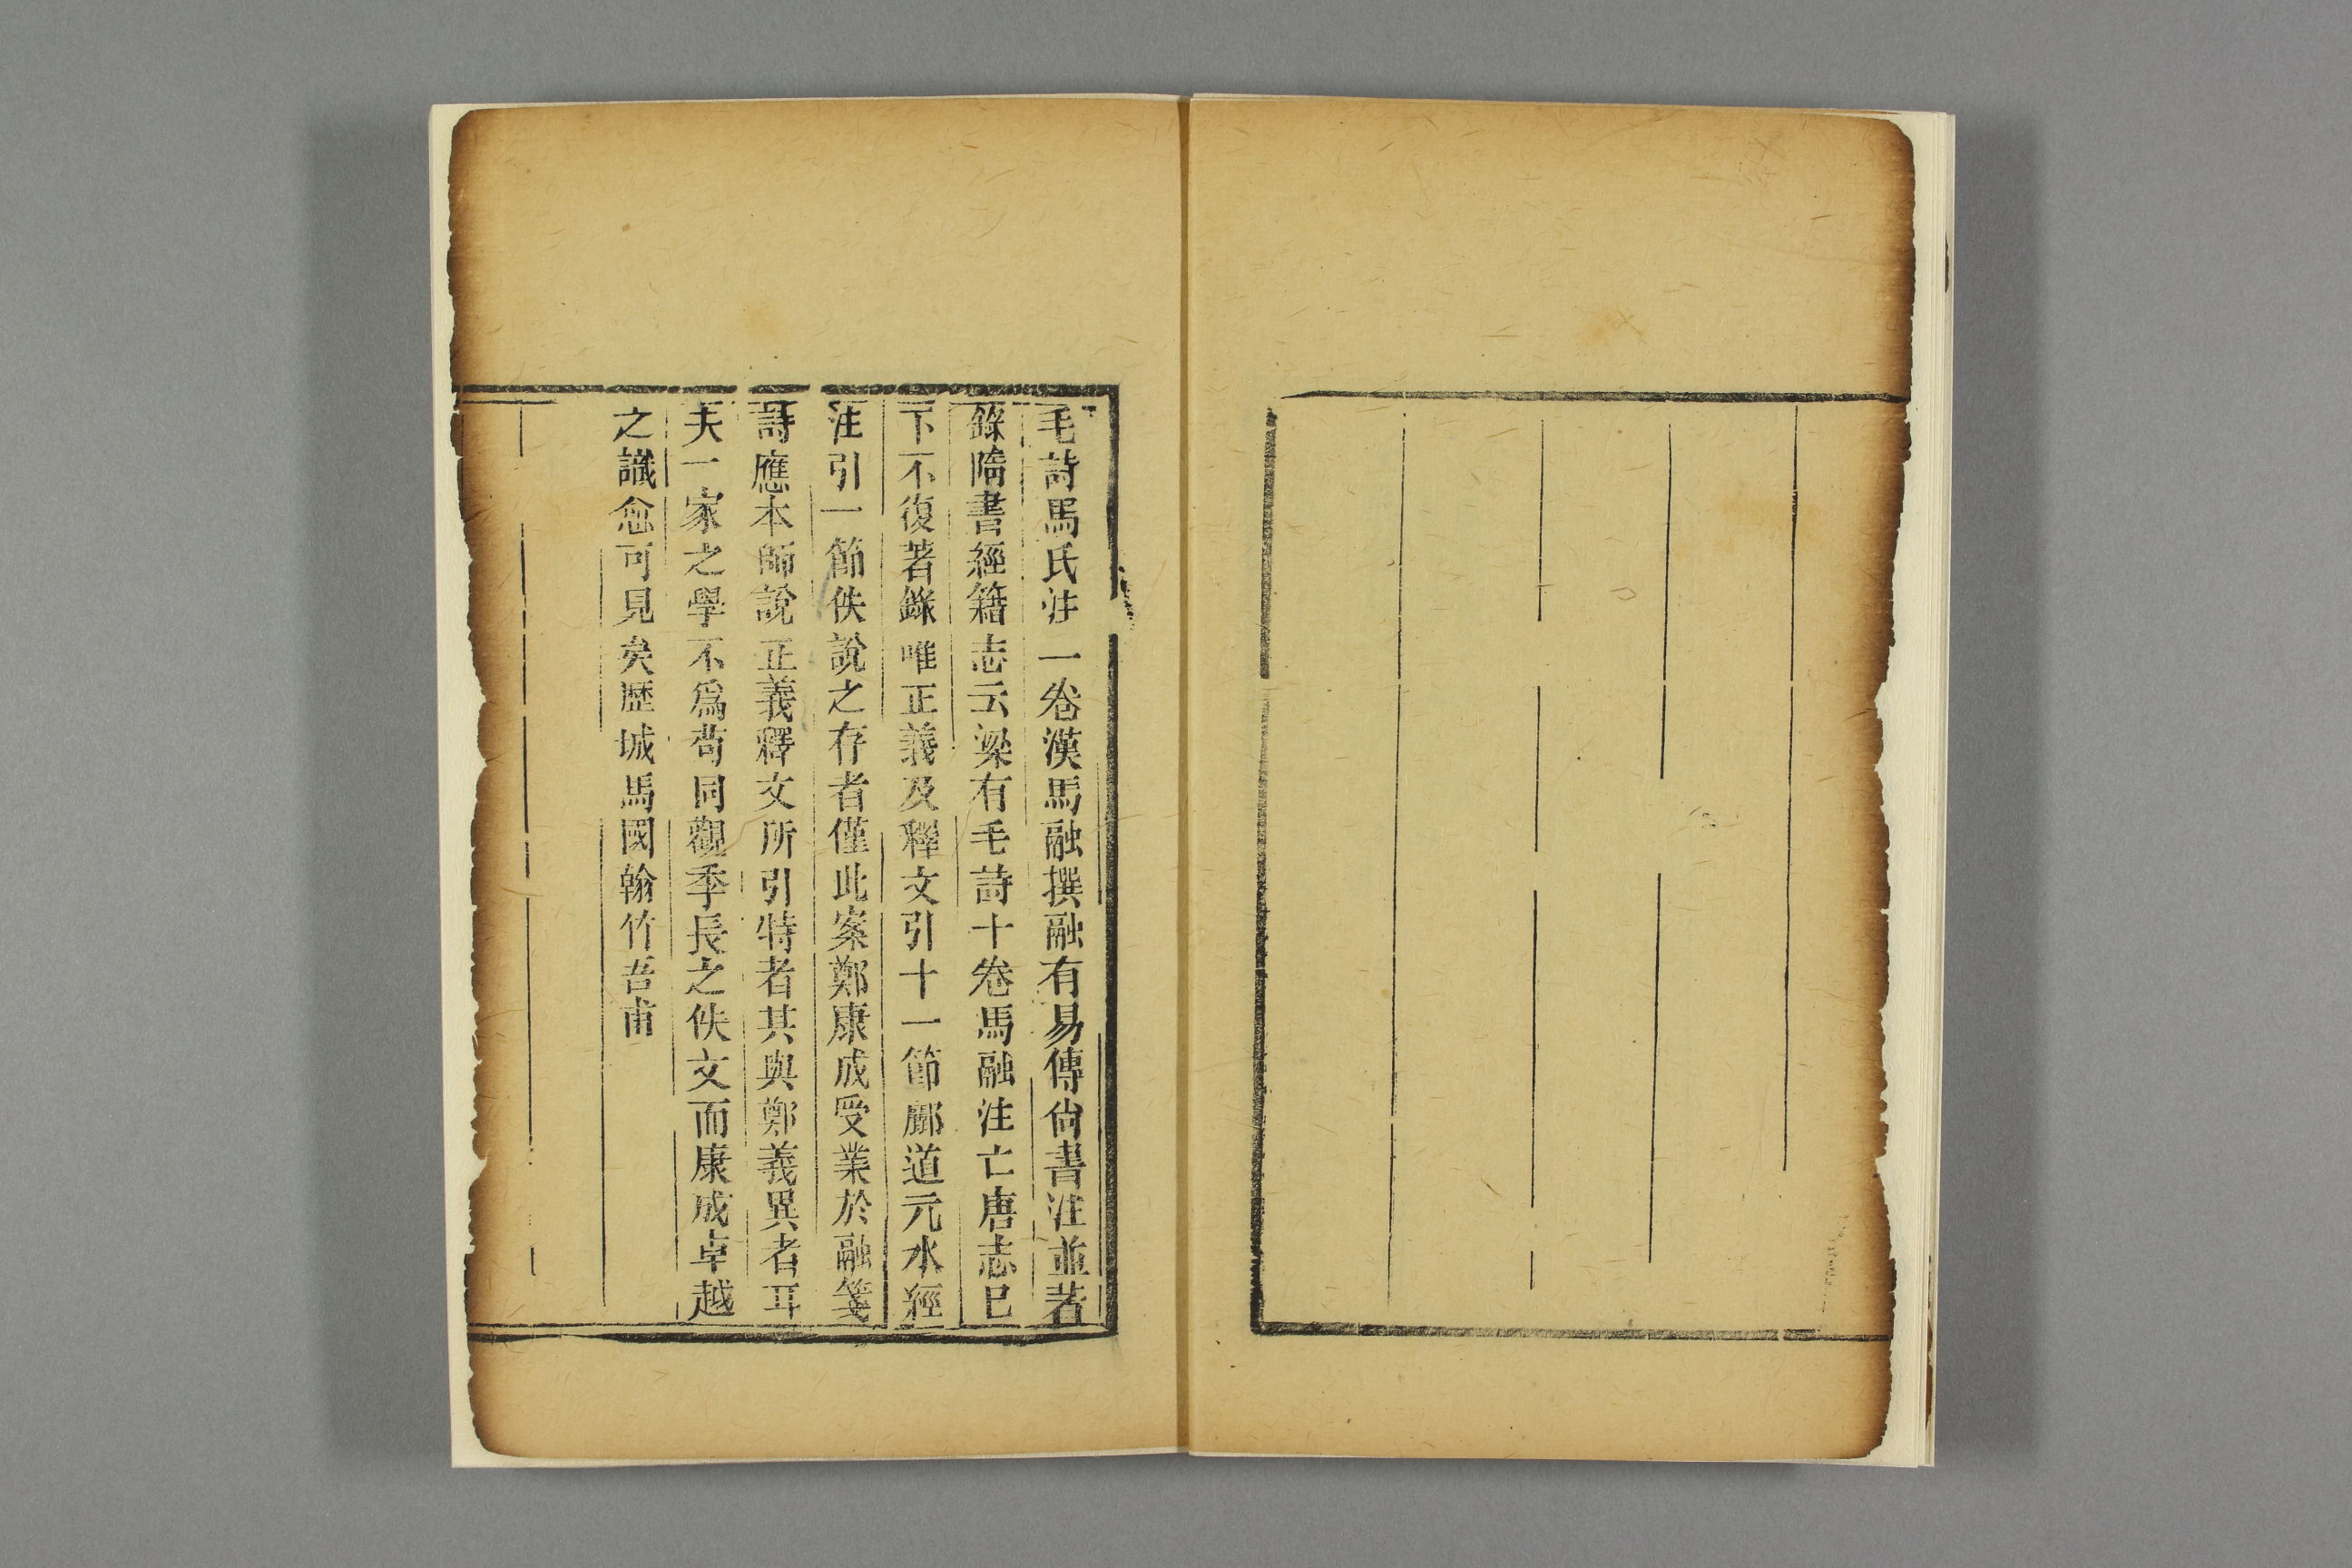 毛詩馬氏注一卷漢馬融撰融有易傳尙書注並著
錄隋書經籍志云梁有毛詩十卷馬融注亡唐志已
下不復著錄唯正義及釋文引十一節酈道元水經
注引一節佚說之存者僅此案鄭康成受業於融箋
詩應本師說正義釋文所引特者其與鄭義異者耳
夫一家之學不爲苟同觀季長之佚文而康成卓越
之識愈可見矣歷城馬國翰竹吾甫